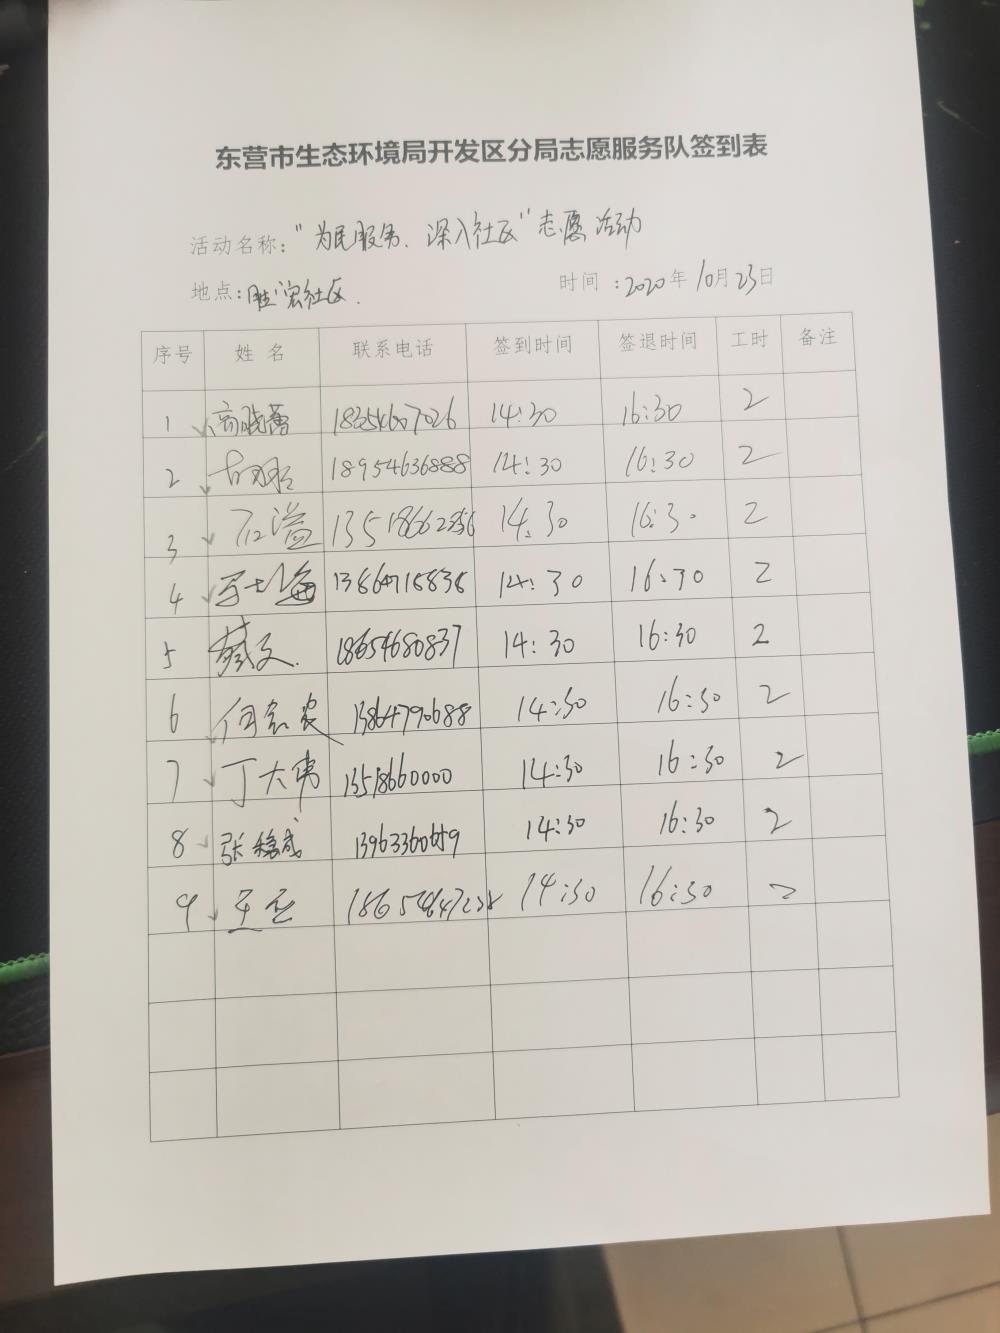 东营市生态环境局开发区分局志愿服务队签到表
活动名称："为民服务、深入社区"志愿活动
地点：胜宏社区.
时间：2020年10月23日
序号 姓名 联系电话 签到时间 签退时间 工时 备注
1 高晓蕾 18354607026 14:30 16:30 2
2 18954636888 14:30 16:30 2
3 石溢 13518662356 14:30 16:30 2
4 13864715838 14:30 16:30 2
5 蔡文. 18654680837 14:30 16:30 2
6 13864790688 14:30 16:30 2
7 丁大伟 13518660000 14:30 16:30 2
8 14:30 16:30 2
9 14:30 16:30 2